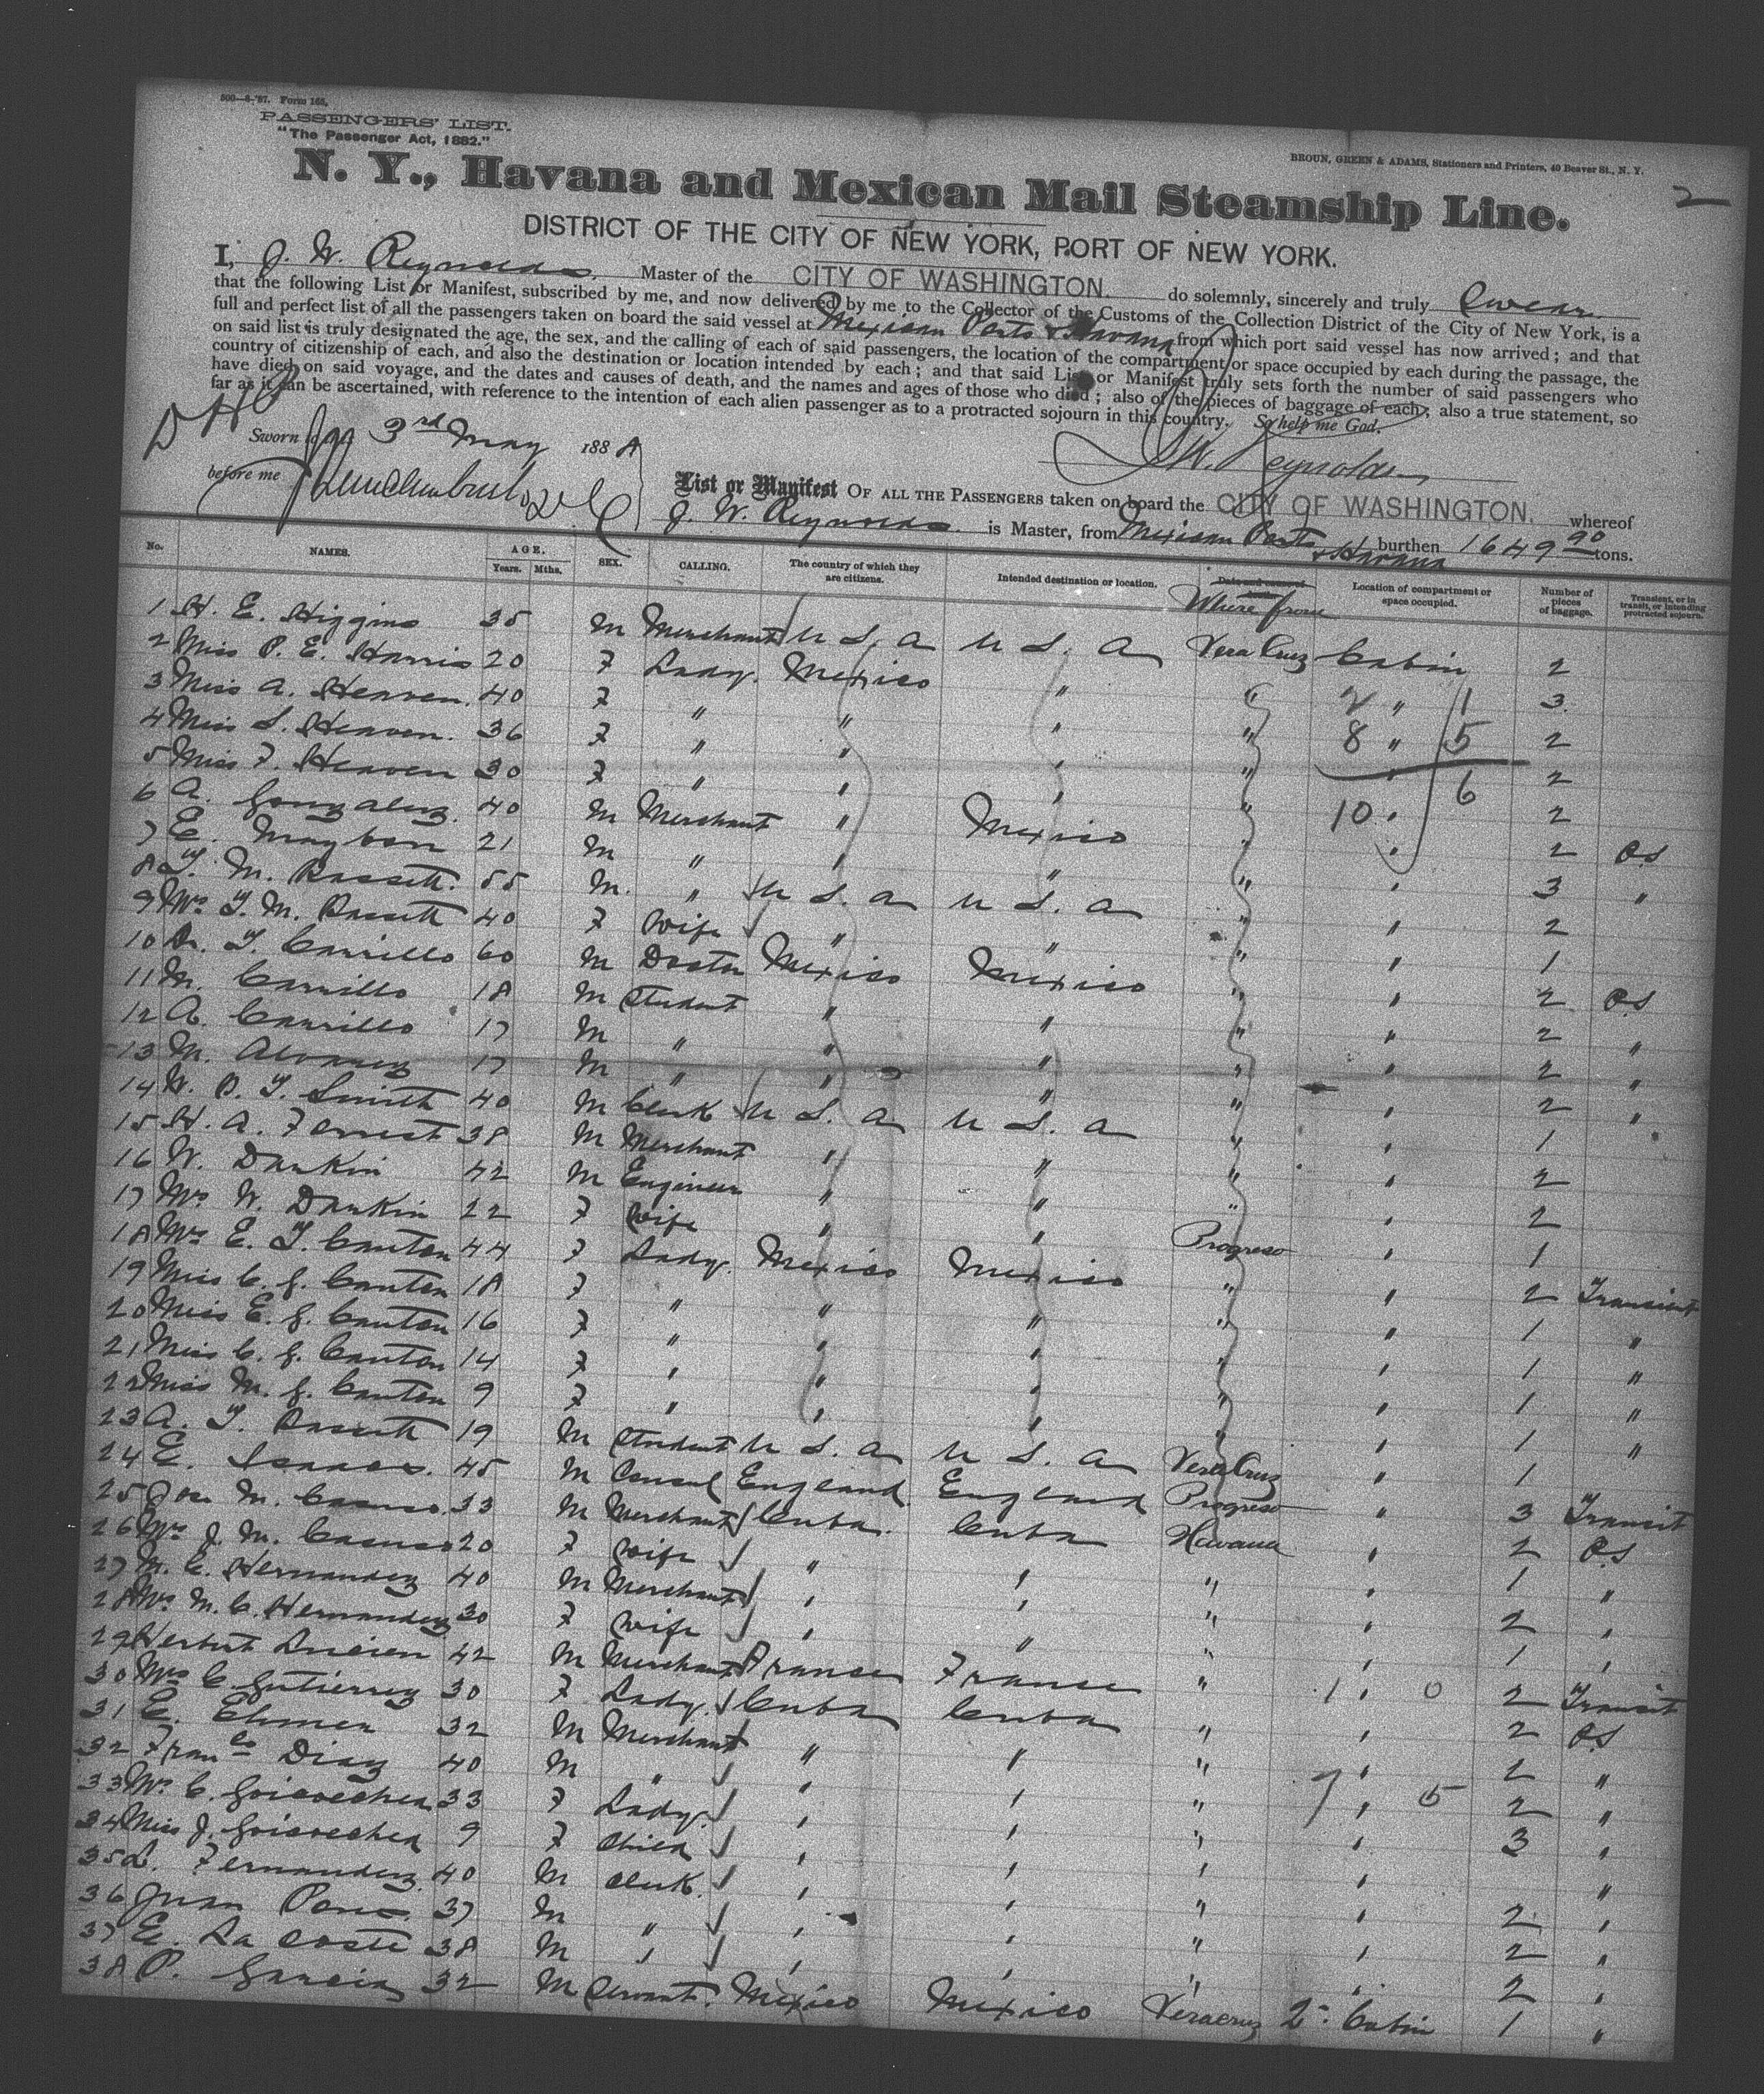 500—8-'87. Form 165.
PASSENGERS' LIST.
"The Passenger Act, 1882."
BROUN, GREEN & ADAMS, Stationers and Printers, 40 Beaver St., N. Y.
2
N. Y., Havana and Mexican Mail Steamship Line.
DISTRICT OF THE CITY OF NEW YORK, PORT OF NEW YORK.
I, J. W. Reynolds. Master of the CITY OF WASHINGTON. do solemnly, sincerely and truly Swear
that the following List or Manifest, subscribed by me, and now delivered by me to the Collector of the Customs of the Collection District of the City of New York, is a
full and perfect list of all the passengers taken on board the said vessel at Mexican Ports & Havana from which port said vessel has now arrived; and that
on said list is truly designated the age, the sex, and the calling of each of said passengers, the location of the compartment or space occupied by each during the passage, the
country of citizenship of each, and also the destination or location intended by each; and that said List or Manifest truly sets forth the number of said passengers who
have died on said voyage, and the dates and causes of death, and the names and ages of those who died; also of the pieces of baggage of each; also a true statement, so
far as it can be ascertained, with reference to the intention of each alien passenger as to a protracted sojourn in this country. So help me God.
Sworn to 3rd May 1888
J. W. Reynolds
before me
List or Manifest OF ALL THE PASSENGERS taken on board the CITY OF WASHINGTON. whereof
J. W. Reynolds is Master, from Mexican Ports & Havana burthen 1649 90 tons.
No. NAMES. AGE. Years. Mths. SEX. CALLING. The country of which they are citizens. Intended destination or location. Where from Location of compartment or space occupied. Number of pieces of baggage. Transient, or in transit, or intending protracted sojourn.
1 H. E. Higgins 35 M Merchant U S. A U S. A Vera Cruz Cabin 2
2 Miss P. E. Harris 20 F Lady. Mexico " " " 3
3 Miss A. Heaven. 40 F " " " " " 2
4 Miss S. Heaven. 36 F " " " " " 2
5 Miss F. Heaven 30 F " " " " " 2
6 A. Gonzalez. 40 M Merchant " Mexico " " 2 PS
7 E. Maybon 21 M " " " " " 3 "
8 T. M. Bassett. 55 M. " U S. A U S. A " " 2
9 Mrs T. M. Bassett 40 F Wife " " " " 1
10 Dr. T. Carrillo 60 M Doctor Mexico Mexico " " 2 PS
11 M. Carrillo 18 M Student " " " " 2 "
12 A. Carrillo 17 M " " " " " 2 "
13 M. Alvarez 17 M " " " " " 2 "
14 W. P. T. Smith 40 M Clerk U S. A U S. A " " 1
15 H. A. Forrest 38 M Merchant " " " " 2
16 W. Dankin 42 M Engineer " " " " 2
17 Mrs W. Dankin 22 F Wife " " " " 1
18 Mrs E. T. Canton 44 F Lady. Mexico Mexico Progreso " 2 Transient
19 Miss C. G. Canton 18 F " " " " " 1 "
20 Miss E. G. Canton 16 F " " " " " 1 "
21 Miss C. G. Canton 14 F " " " " " 1 "
22 Miss M. G. Canton 9 F " " " " " 1 "
23 A. T. Bassett 19 M Student U S. A U S. A Vera Cruz " 1
24 E. Isaacs. 45 M Consul England. England Progreso " 3 Transit
25 Jose M. Casuso. 33 M Merchant Cuba. Cuba Havana " 2 PS
26 Mrs J. M. Casuso 20 F Wife " " " " 1 "
27 M. C. Hernandez 40 M Merchant " " " " 2 "
28 Mrs M. C. Hernandez 30 F Wife " " " " 1 "
29 Herbert Lucien 42 M Merchant France France " " 2 Transit
30 Mrs C. Gutierrez 30 F Lady. Cuba Cuba " " 2 PS
31 E. Elmen 32 M Merchant " " " " 2 "
32 Franco Diaz 40 M " " " " " 2 "
33 Mrs C. Goicoechea 33 F Lady. " " " " 3 "
34 Miss J. Goicoechea 9 F Child " " " " "
35 L. Fernandez. 40 M Clerk. " " " " 2 "
36 Juan Pons. 37 M " " " " " 2 "
37 E. La Coste 38 M " " " " " 2 "
38 P. Garcia 32 M Servant. Mexico Mexico Veracruz 2nd Cabin 1 "